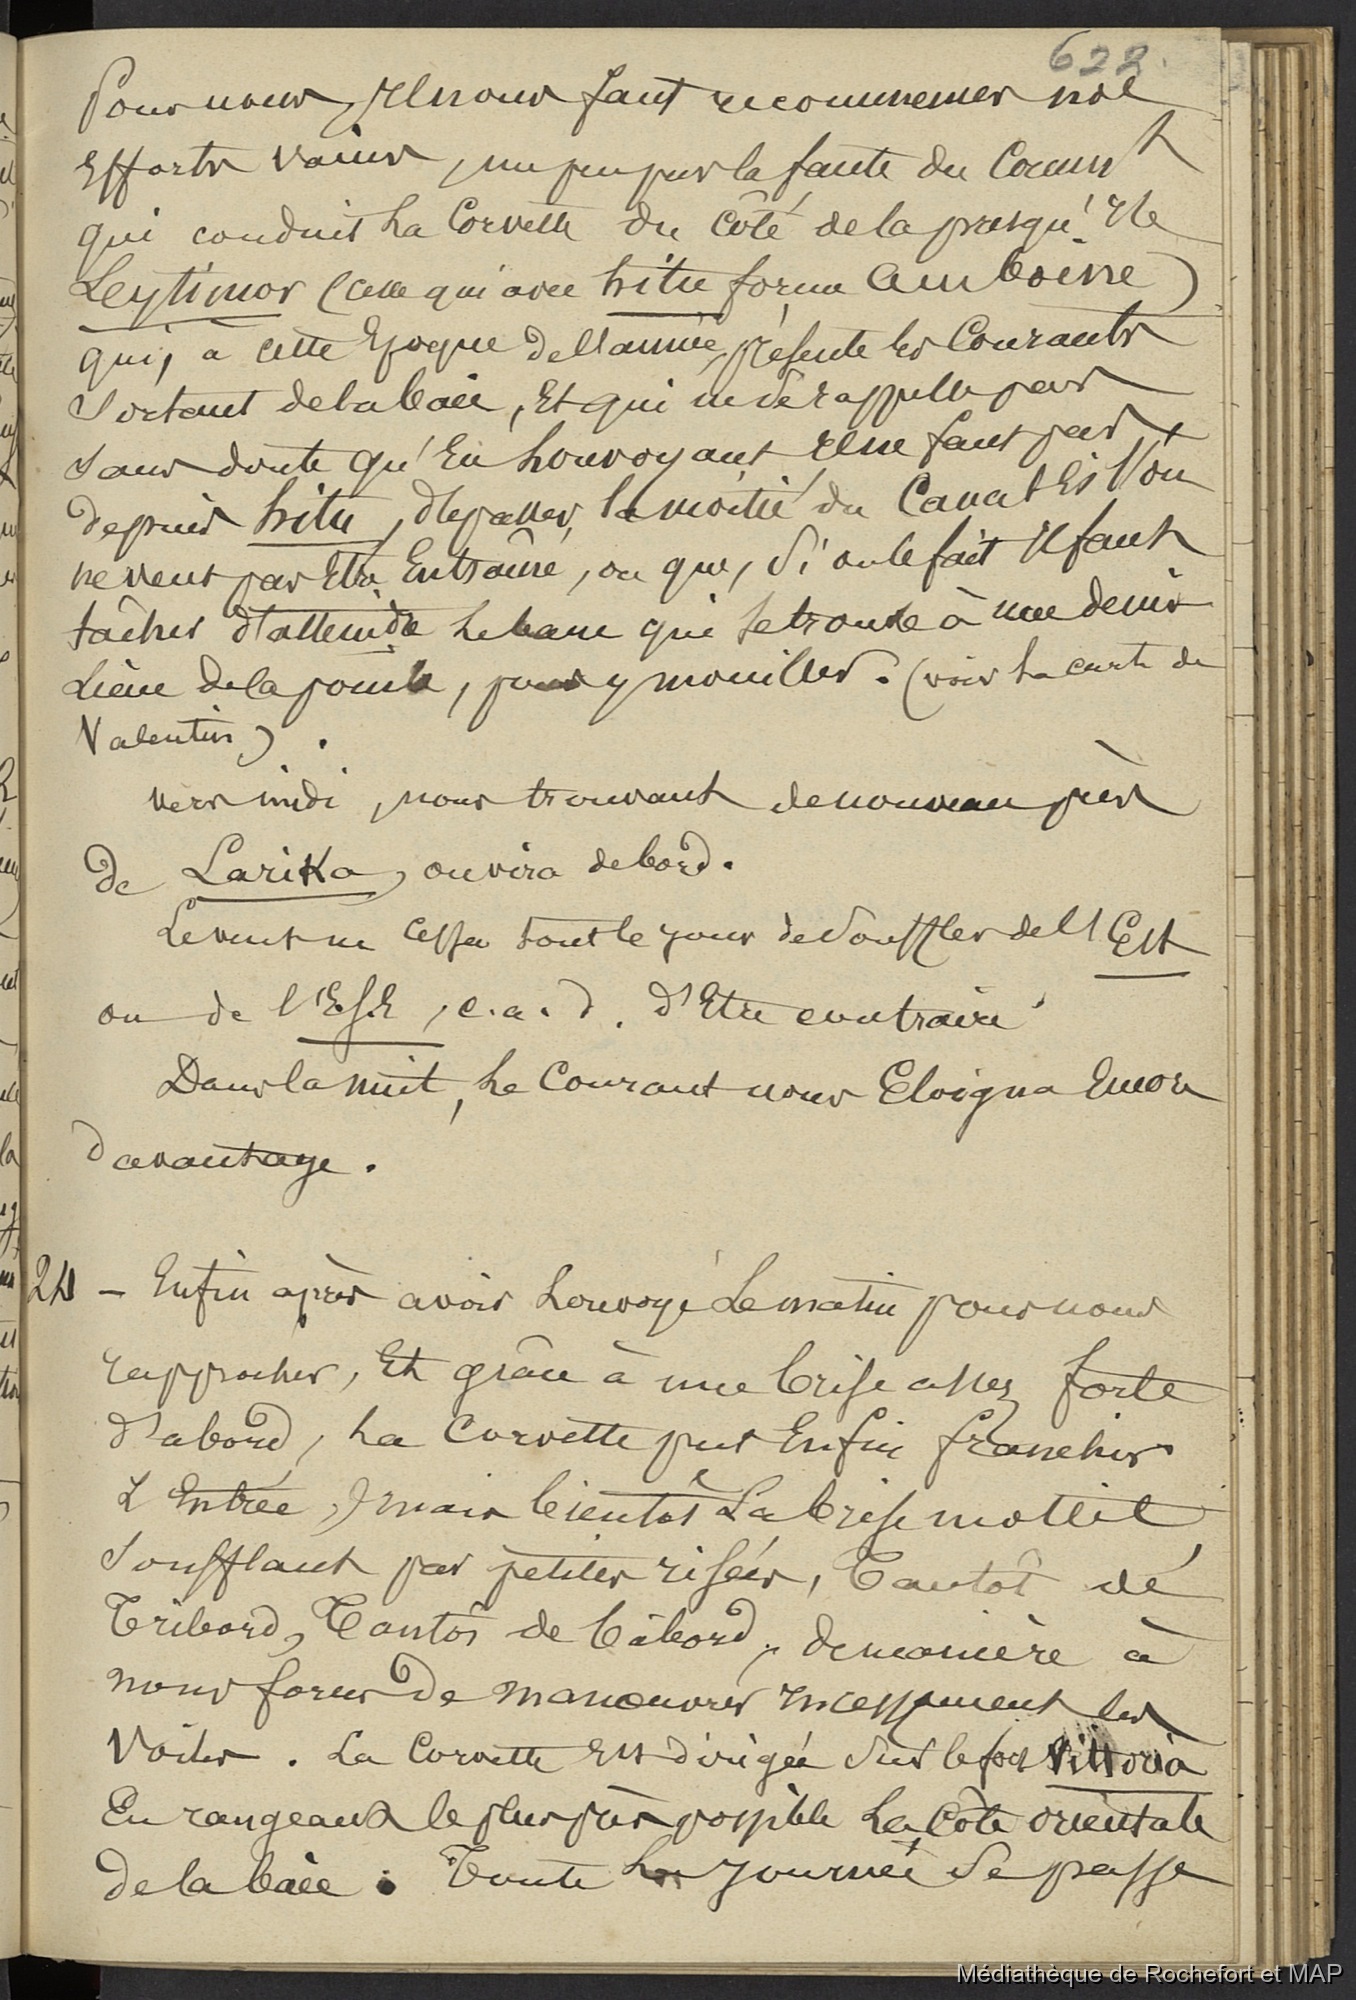 622.
Pour nous, Il nous faut recommencer nos
Efforts vains, un peu par la faute du Comm
qui conduit la Corvette du côté de la presqu'Ile
Leytimor (celle qui avec hitu forme Amboine)
qui, à cette Epoque de l'année, présente les Courants
Sortant de la baie, Et qui ne se rappelle pas
Sans doute qu'En louvoyant Il ne faut pas,
depuis hitu, dépasser la moitié du Canal si l'on
ne veut pas Etre Entraîné, ou que, Si on le fait Il faut
tâcher d'atteindre le banc qui se trouve à une demie
Lieue de la pointe, pour y mouiller. (voir la carte de
Valentin).
vers midi, nous trouvant de nouveau près
de Larika, on vira de bord.
Le vent ne cessa tout le jour de Souffler de l'Est
ou de l'E.S.E, c.a.d. d'Etre contraire
Dans la nuit, le Courant nous Eloigna Encore
davantage.
24 - Enfin après avoir louvoyé Le matin pour nous
rapprocher, Et grâce à une brise assez forte
d'abord, la Corvette put Enfin franchir
L'Entrée, mais bientôt La brise mollit
Soufflant par petites risées, Tantôt de
Tribord, Tantôt de bâbord, de manière à
nous forcer de manœuvrer Incessament les
Voiles. La Corvette Est dirigée Sur le fort Vittoria
En rangeant le plus près possible La Côte orientale
de la baie. Toute la Journée Se passe
Médiathèque de Rochefort et MAP